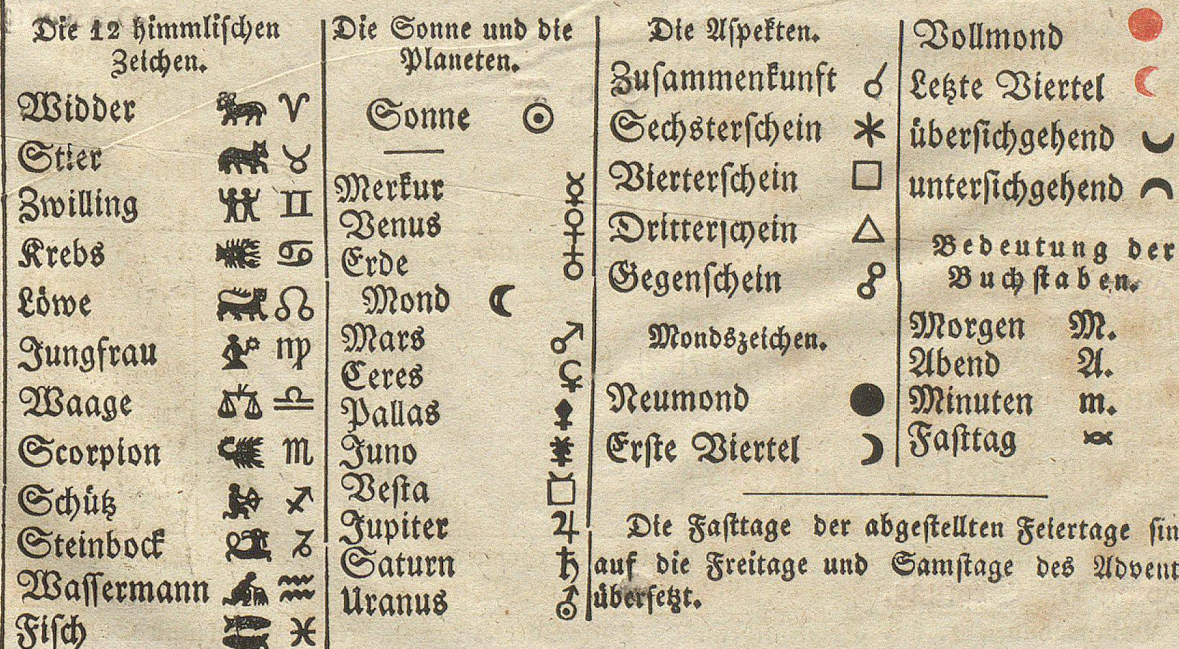 Die 12 himmlischen
Zeichen.
Widder ♈
Stier ♉
Zwilling ♊
Krebs ♋
Löwe ♌
Jungfrau ♍
Waage ♎
Scorpion ♏
Schütz ♐
Steinbock ♑
Wassermann ♒
Fisch ♓
Die Sonne und die
Planeten.
Sonne ☉
Merkur ☿
Venus ♀
Erde ♁
Mond ☾
Mars ♂
Ceres ⚳
Pallas ⚴
Juno ⚵
Vesta ⚶
Jupiter ♃
Saturn ♄
Uranus ⛢
Die Aspekten.
Zusammenkunft ☌
Sechsterschein ⚹
Vierterschein □
Dritterschein △
Gegenschein ☍
Mondszeichen.
Neumond ●
Erste Viertel ☽
Vollmond
Letzte Viertel ☾
übersichgehend
untersichgehend
Bedeutung der
Buchstaben.
Morgen M.
Abend A.
Minuten m.
Fasttag
Die Fasttage der abgestellten Feiertage sin
auf die Freitage und Samstage des Advent
übersetzt.